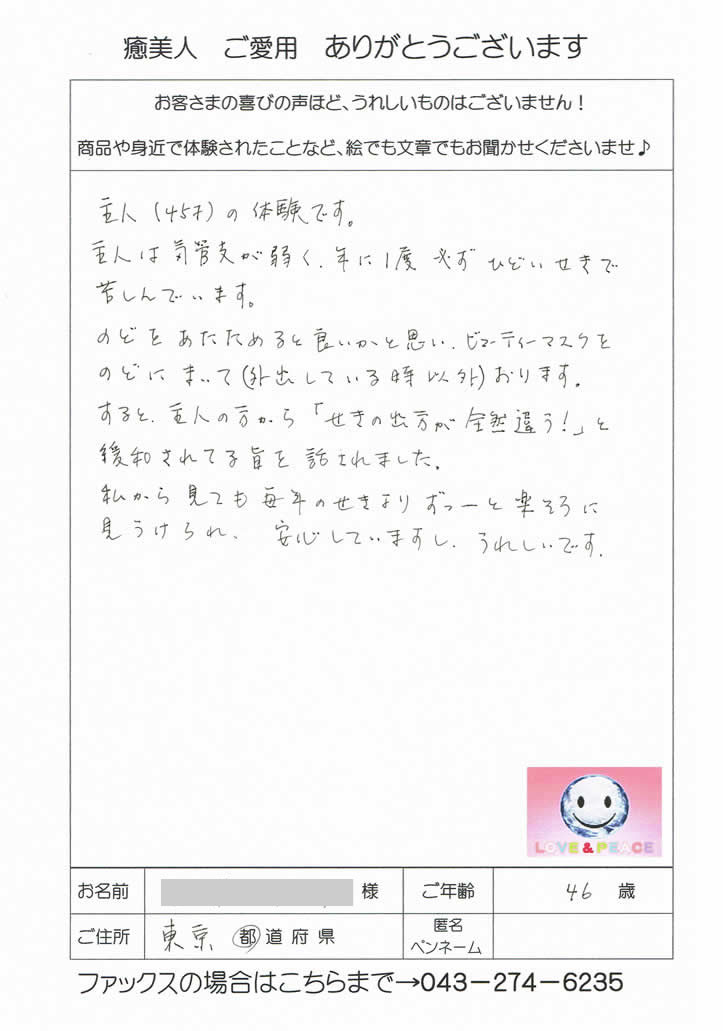 癒美人　ご愛用　ありがとうございます
お客さまの喜びの声ほど、うれしいものはございません！
商品や身近で体験されたことなど、絵でも文章でもお聞かせくださいませ♪
主人（45才）の体験です。
主人は気管支が弱く、年に1度 必ず ひどいせきで
苦しんでいます。
のどをあたためると良いかと思い、ビューティーマスクを
のどにまいて（外出している時以外）おります。
すると、主人の方から「せきの出方が全然違う！」と
緩和されてる旨を話されました。
私から見ても毎年のせきよりずっーと楽そうに
見うけられ、安心していますし、うれしいです。
LOVE & PEACE
お名前　様　ご年齢　46 歳
ご住所　東京 都道府県　匿名
ペンネーム
ファックスの場合はこちらまで→043－274－6235